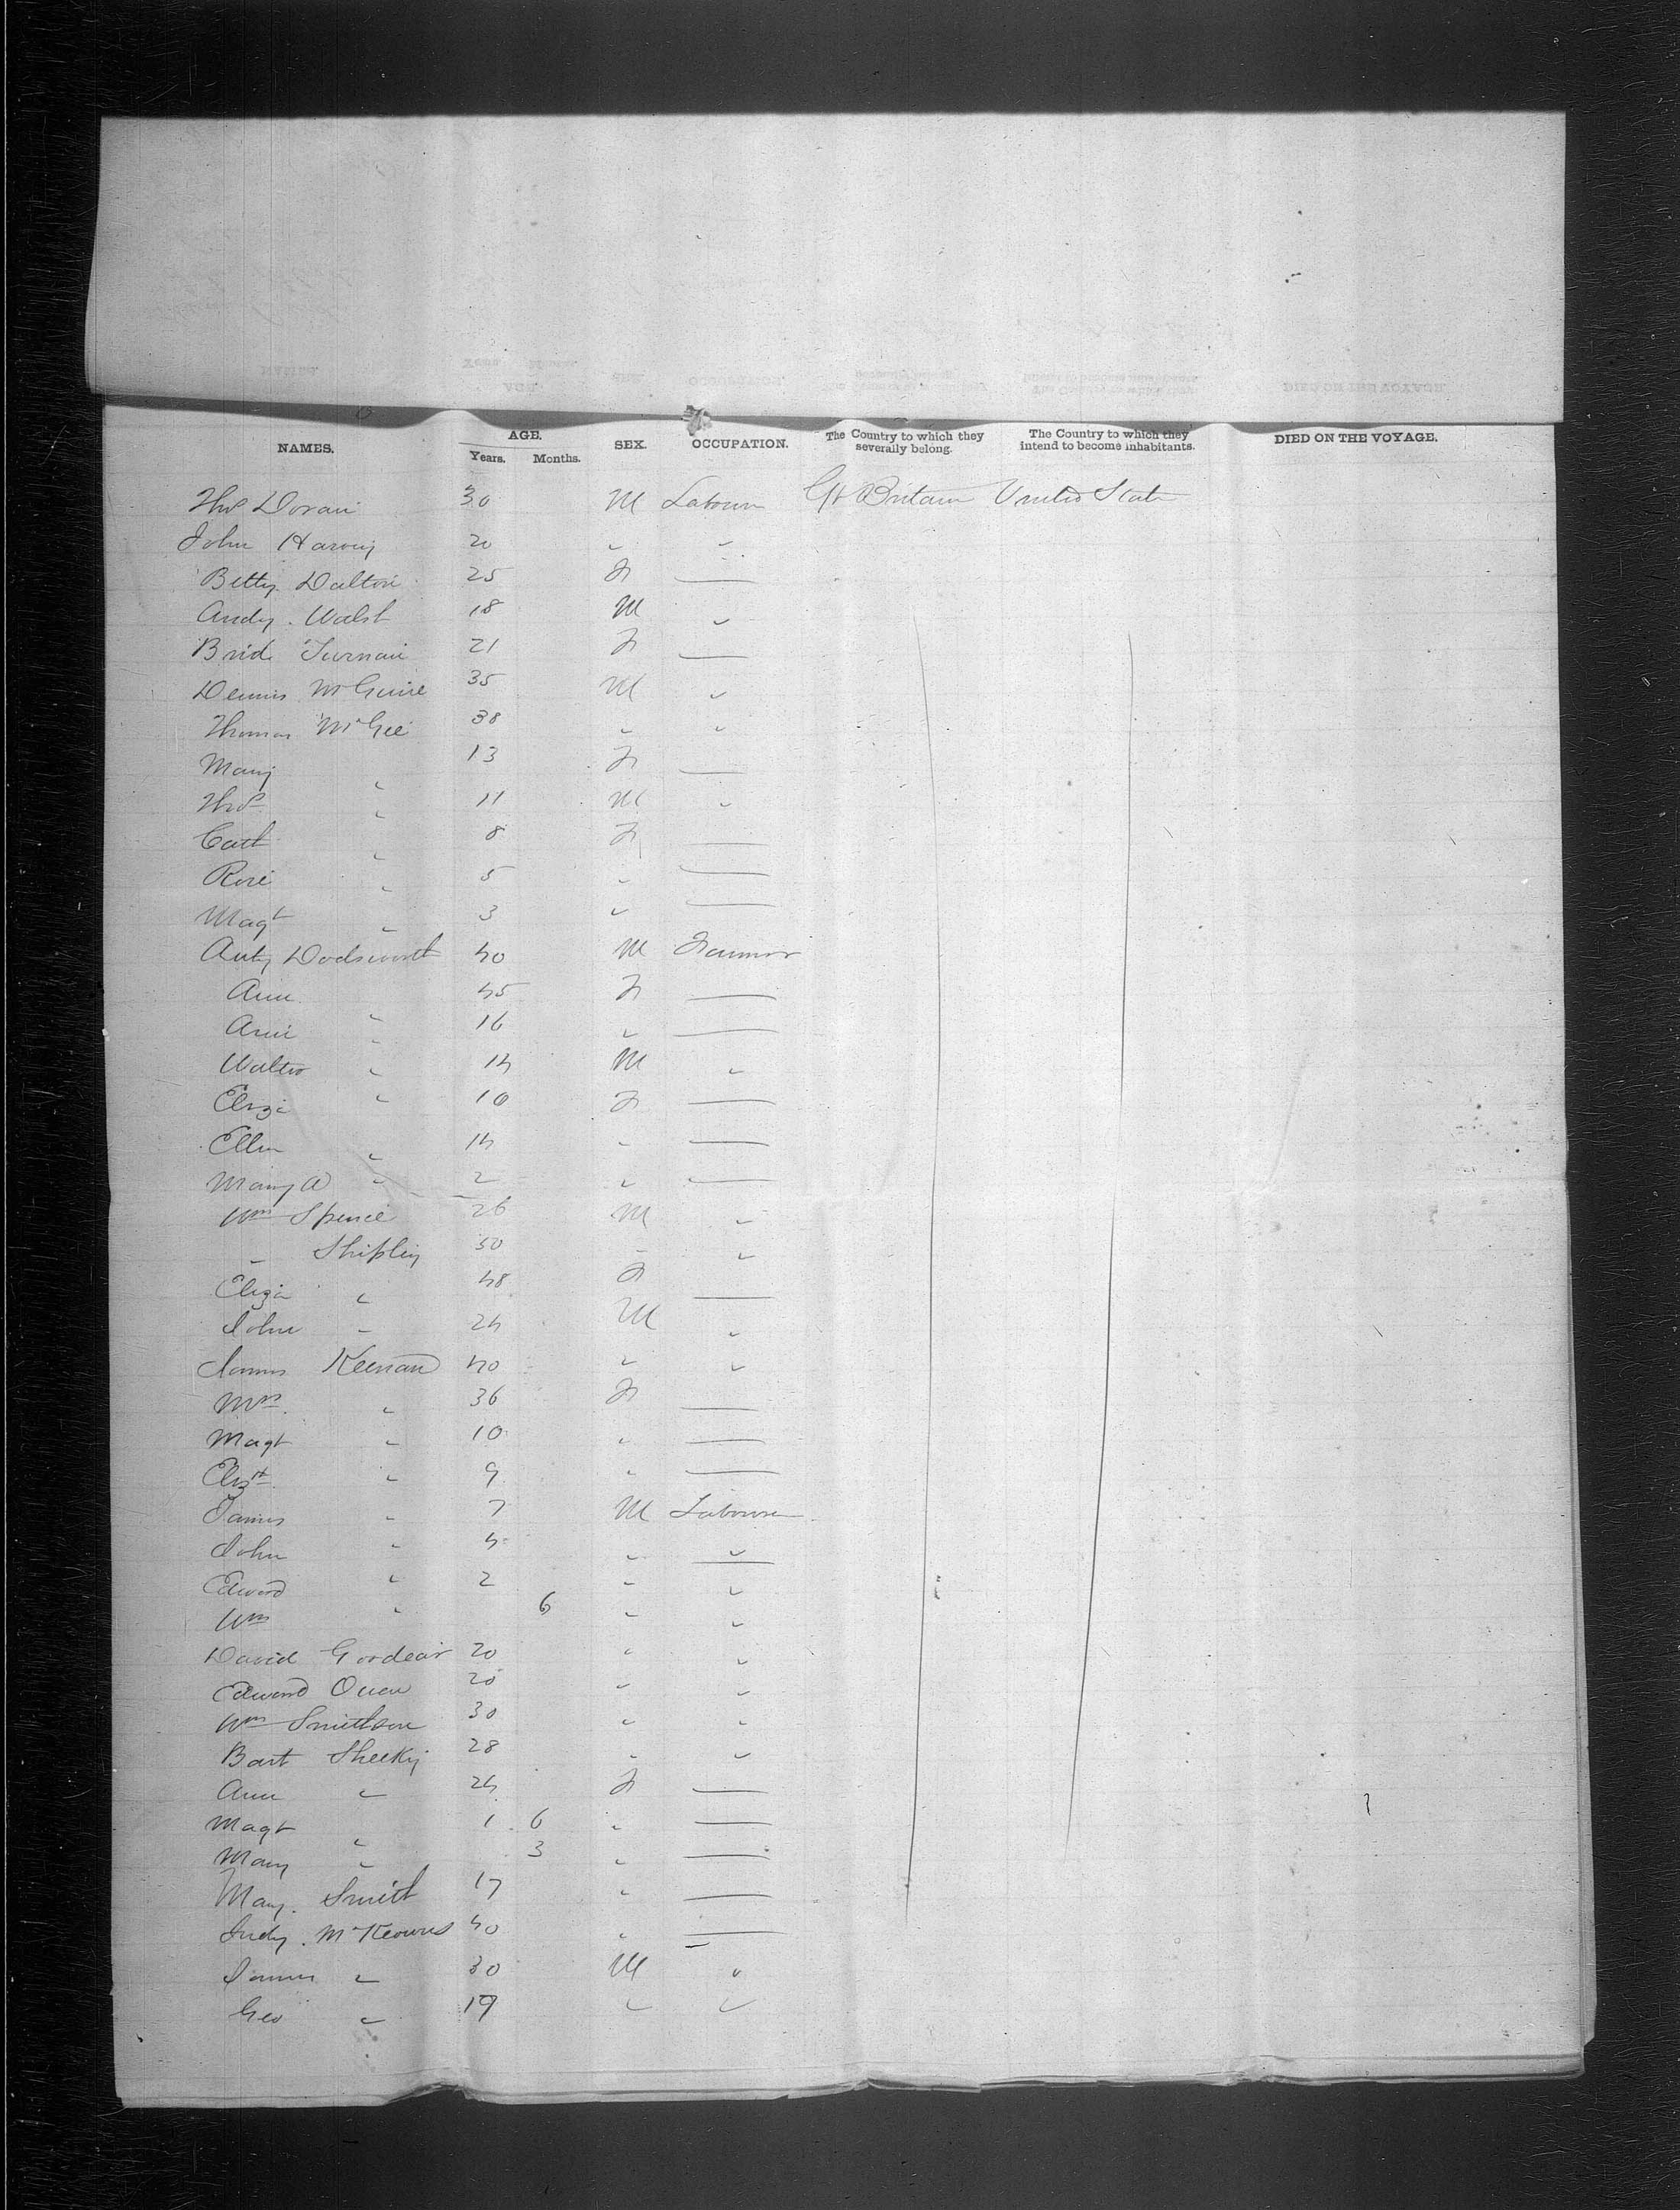 NAMES. AGE. Years. Months. SEX. OCCUPATION. The Country to which they severally belong. The Country to which they intend to become inhabitants. DIED ON THE VOYAGE.
Thos Doran 30 M Labourer Gt Britain United States
John Harvey 20 " "
Betty Dalton 25 F —
Andy. Walsh 18 M "
Brid. 21 F —
Dennis McGuire 35 M "
Thomas McGee 38 " "
Mary " 13 F —
Thos " 11 M "
Cath " 8 F —
Rose " 5 " —
Magt " 3 " —
Anty Dodsworth 40 M Farmer
Ann " 45 F —
Ann " 16 " —
Walter " 14 M "
Eliza " 10 F —
Ellen " 14 " —
Mary A " 2 " —
Wm Spence 26 M "
" Shipley 50 " "
Eliza " 48 F —
John " 24 M "
James Keenan 40 " "
Mrs. " 36 F —
Magt " 10 " —
Elizth " 9 " —
James " 7 M Labourer
John " 4 " "
Edward " 2 " "
Wm " 6 " "
David Goodear 20 " "
Edward Owen 20 " "
Wm Smithson 30 " "
Bart Sheeky 28 " "
Ann " 24 F —
Magt " 1 6 " —
Mary " 3 " —
Mary. Smith 17 " —
Judy. McKeown 40 " —
James " 30 M "
Geo " 19 " "